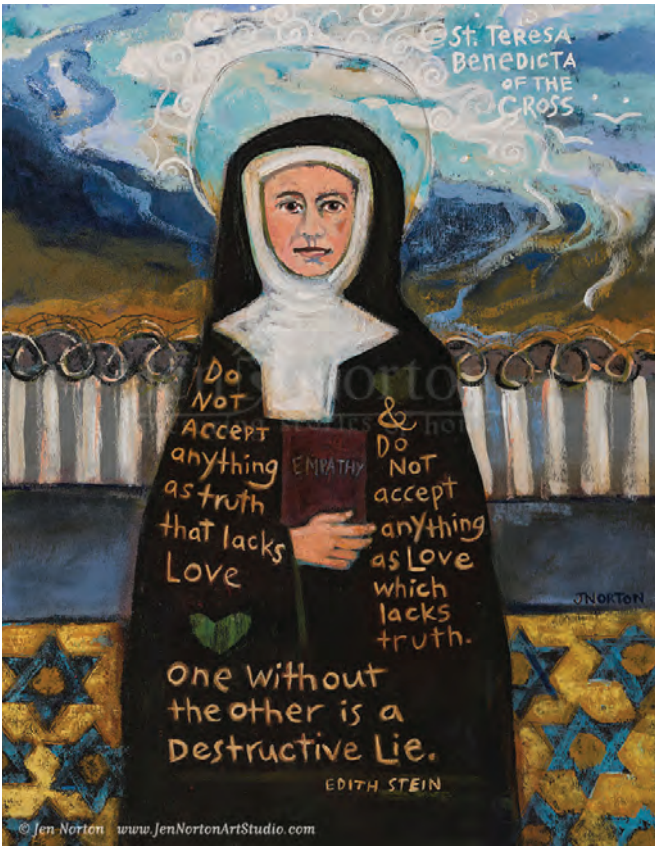 St. Teresa
Benedicta
OF THE
CROSS
Do
NOT
Accept
anything
as truth
that lacks
Love
EMPATHY
&
DO
NOT
accept
anything
as Love
which
lacks
truth.
JNORTON
One without
the other is a
Destructive Lie.
EDITH STEIN
© Jen Norton www.JenNortonArtStudio.com